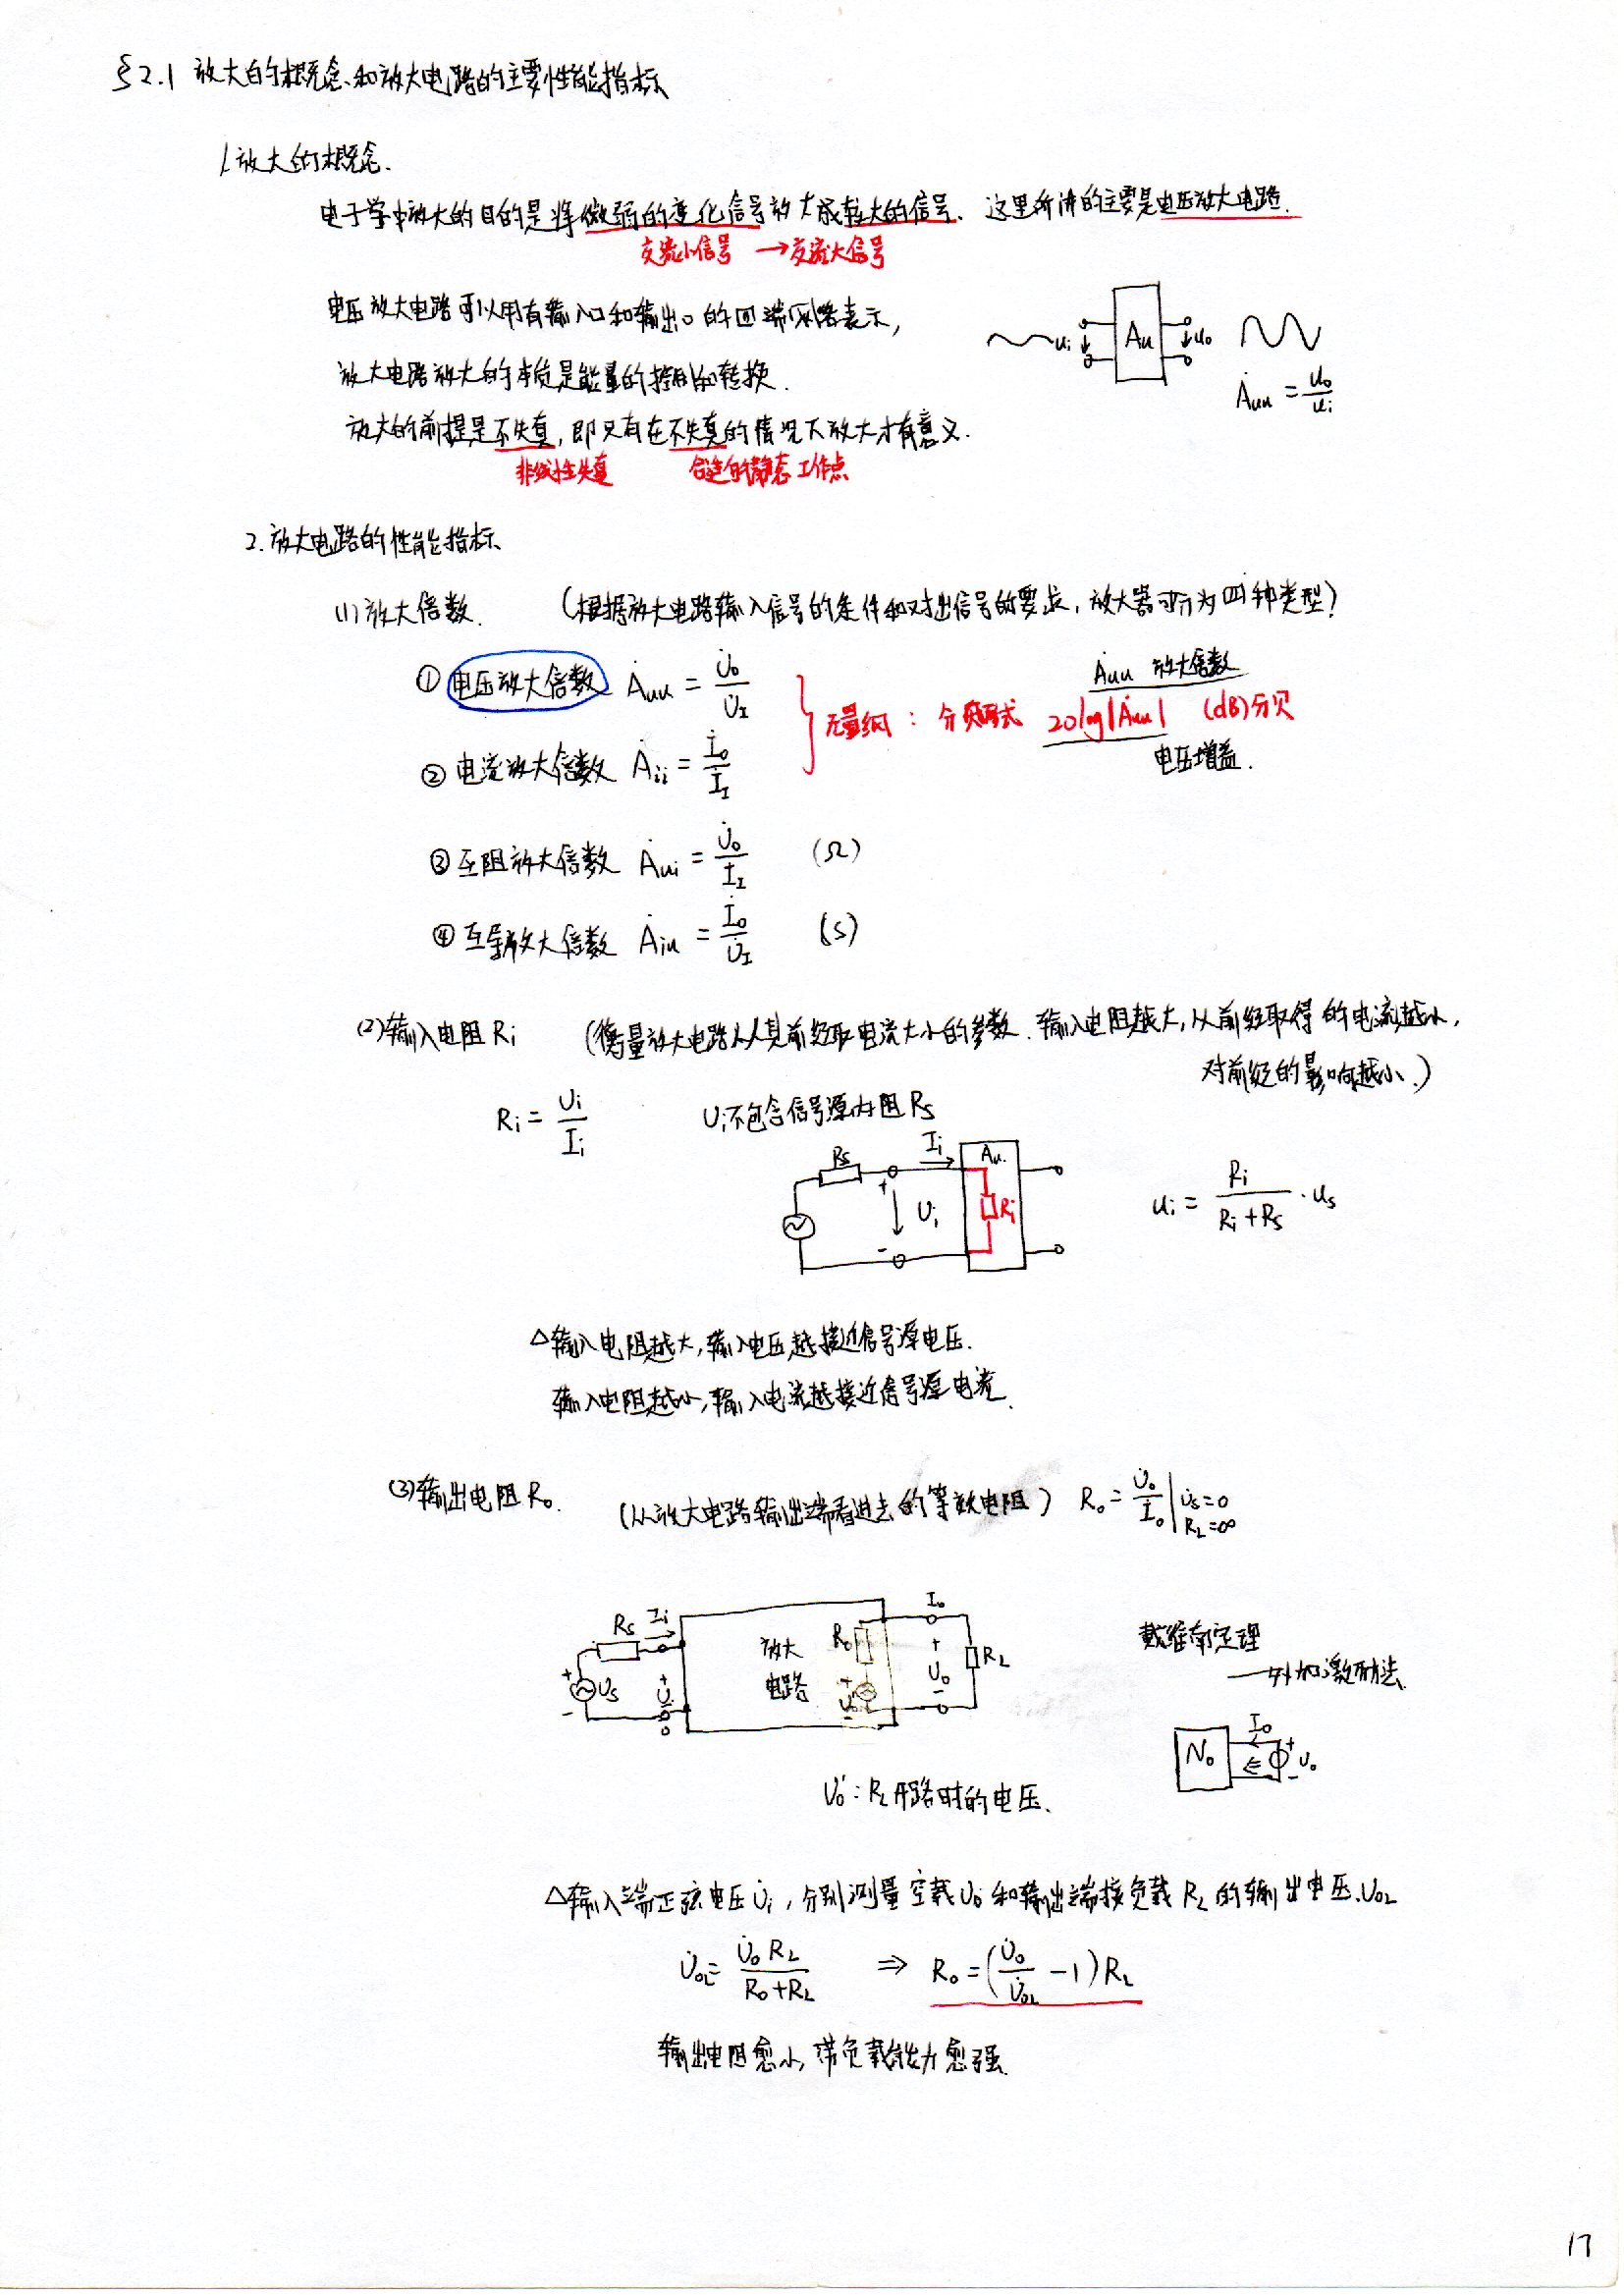 §2.1 放大的概念和放大电路的主要性能指标
1.放大的概念.
电子学中放大的目的是将微弱的变化信号放大成较大的信号. 这里所讲的主要是电压放大电路.
交流小信号 → 交流大信号
电压放大电路可以用有输入口和输出口的四端网络表示,
ui Au uo
放大电路放大的本质是能量的控制和转换.
Ȧuu = Uo/Ui
放大的前提是不失真, 即只有在不失真的情况下放大才有意义.
非线性失真 合适的静态工作点
2.放大电路的性能指标
(1)放大倍数. (根据放大电路输入信号的条件和对输出信号的要求, 放大器可分为四种类型)
① 电压放大倍数 Ȧuu = U̇o/U̇I
Ȧuu 放大倍数
无量纲: 分贝形式 20log|Ȧuu| (dB)分贝
电压增益.
② 电流放大倍数 Ȧii = İo/İI
③ 互阻放大倍数 Ȧui = U̇o/İI (Ω)
④ 互导放大倍数 Ȧiu = İo/U̇I (S)
(2)输入电阻Ri (衡量放大电路从其前级取电流大小的参数. 输入电阻越大, 从前级取得的电流越小,
对前级的影响越小.)
Ri = Ui/Ii Ui不包含信号源内阻Rs
Rs Ii Au. + Ui - Ri
ui = Ri/(Ri+Rs)·us
△输入电阻越大, 输入电压越接近信号源电压.
输入电阻越小, 输入电流越接近信号源电流.
(3)输出电阻Ro. (从放大电路输出端看进去的等效电阻) Ro = U̇o/İo | U̇s=0 RL=∞
Rs Ii + Us - + Ui 放大 电路 Ro + Uo' - Io + Uo - RL
戴维南定理
——外加激励法.
No Io + Uo -
U̇o': RL开路时的电压.
△输入端正弦电压U̇i, 分别测量空载U̇o和输出端接负载RL的输出电压.UoL
U̇oL = U̇oRL/(Ro+RL) ⇒ Ro = (U̇o/U̇oL - 1)RL
输出电阻愈小, 带负载能力愈强.
17